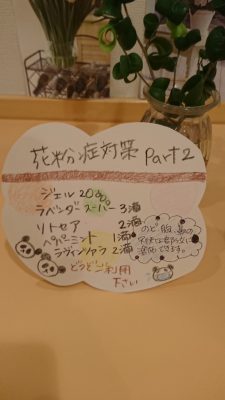 花粉症対策 Part2
ジェル 20g
ラベンダースーパー 3滴
リトセア 2滴
ペパーミント 1滴
ラヴィンツァラ 2滴
どうぞご利用
下さい
のど・胸、
できます。